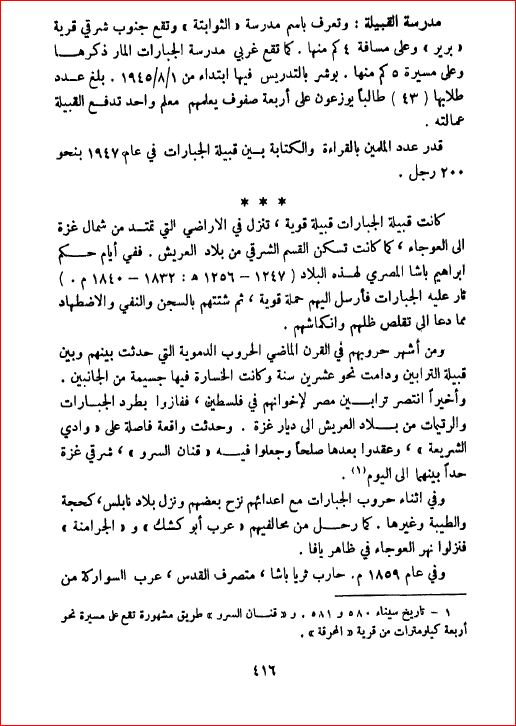 مدرسة القبيلة : وتعرف باسم مدرسة « الثوابتة » وتقع جنوب شرقي قرية
« برير » وعلى مسافة ٤ كم منها . كما تقع غربي مدرسة الجبارات المار ذكرها
وعلى مسيرة ٥ كم منها . بوشر بالتدريس فيها ابتداء من ١٩٤٥/٨/١ . بلغ عدد
طلابها ( ٤٣ ) طالباً يوزعون على أربعة صفوف يعلمهم معلم واحد تدفع القبيلة
عمالته .
قدر عدد الملمين بالقراءة والكتابة بين قبيلة الجبارات في عام ١٩٤٧ بنحو
٢٠٠ رجل .
* * *
كانت قبيلة الجبارات قبيلة قوية ، تنزل في الاراضي التي تمتد من شمال غزة
الى العوجاء ، كما كانت تسكن القسم الشرقي من بلاد العريش . ففي أيام حكم
ابراهيم باشا المصري لهذه البلاد ( ١٢٤٧ – ١٢٥٦ هـ : ١٨٣٢ – ١٨٤٠ م . )
ثار عليه الجبارات فأرسل اليهم حملة قوية ، ثم شتتهم بالسجن والنفي والاضطهاد
مما دعا الى تقلص ظلهم وانكماشهم .
ومن أشهر حروبهم في القرن الماضي الحروب الدموية التي حدثت بينهم وبين
قبيلة الترابين ودامت نحو عشرين سنة وكانت الخسارة فيها جسيمة من الجانبين .
وأخيراً انتصر ترابين مصر لإخوانهم في فلسطين ، ففازوا بطرد الجبارات
والرتيمات من بلاد العريش الى ديار غزة . وحدثت واقعة فاصلة على « وادي
الشريعة » ، وعقدوا بعدها صلحاً وجعلوا فيه « قنان السرو » ، شرقي غزة
حداً بينهما الى اليوم (١) .
وفي اثناء حروب الجبارات مع اعدائهم نزح بعضهم ونزل بلاد نابلس، كحجة
والطيبة وغيرها . كما رحل من محالفيهم « عرب أبو كشك » و « الجرامنة »
فنزلوا نهر العوجاء في ظاهر يافا .
وفي عام ١٨٥٩ م. حارب ثريا باشا ، متصرف القدس ، عرب السواركة من
١ – تاريخ سيناء ٥٨٠ و ٥٨١ . و « قنان السرو » طريق مشهورة تقع على مسيرة نحو
أربعة كيلومترات من قرية « المحرقة » .
٤١٦